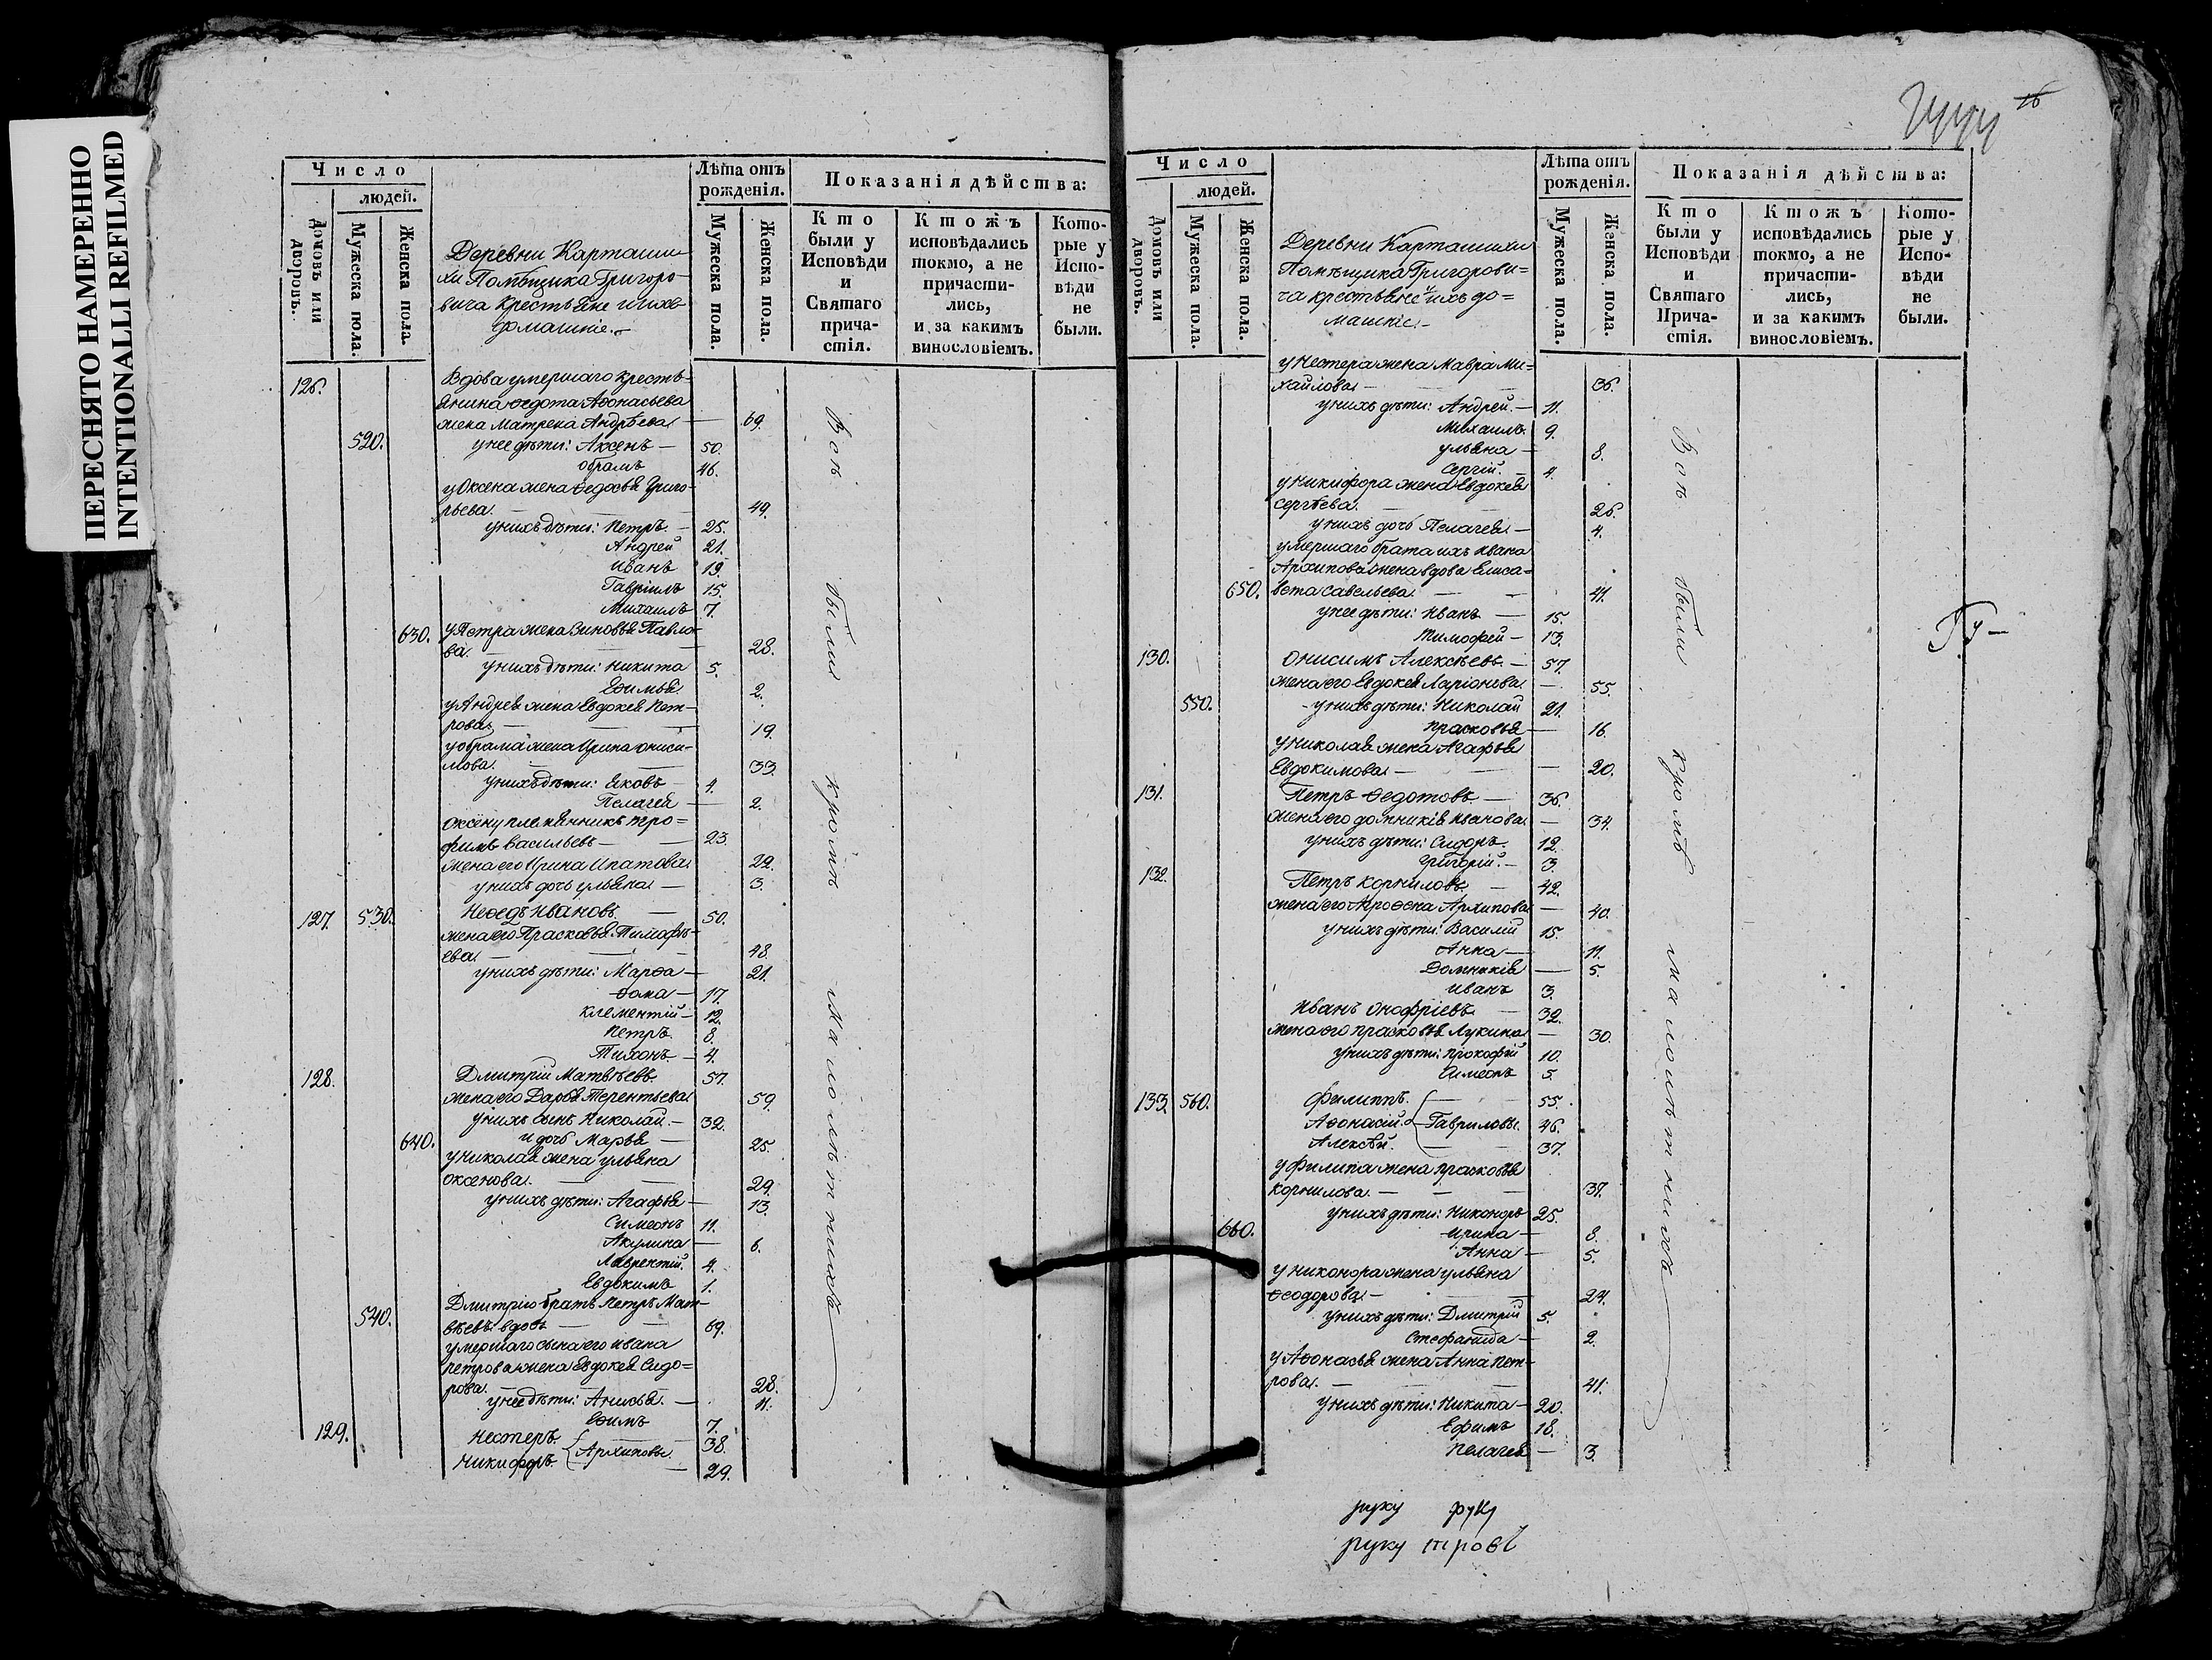 ПЕРЕСНЯТО НАМЕРЕННО
INTENTIONALLI REFILMED
Число
людей.
Домовъ или дворовъ.
Мужеска пола.
Женска пола.
Деревни Карташи-
хи Помѣщика Григоро-
вича крестьяне и ихъ
домашніе.
Лѣта отъ
рожденія.
Мужеска пола.
Женска пола.
Показанія дѣйства:
Кто
были у
Исповѣди
и
Святаго
прича-
стія.
Ктожъ
исповѣдались
токмо, а не
причасти-
лись,
и за какимъ
винословіемъ.
Кото-
рые у
Испо-
вѣди
не
были.
126. Вдова умершаго кресть-
янина Ѳедота Аѳонасьева
жена Матрена Андрѣева — 69.
520. у нее дѣти: Аксенъ — 50.
Обрамъ 46.
у Оксена жена Ѳедосья Григо-
рьева. — 49.
у нихъ дѣти: Петръ — 25.
Андрей 21.
Иванъ 19.
Гавріилъ 15.
Михаилъ 7.
630. у Петра жена Зиновья Павло-
ва. — 28.
у нихъ дѣти: Никита 5.
Евѳимья 2.
у Андрея жена Евдокея Пет-
рова. — 19.
у Обрама жена Ирина Ониси-
мова. — 33.
у нихъ дѣти: Яковъ — 4.
Пелагея — 2.
Оксену племянникъ Тро-
фимъ Васильевъ — 23.
жена его Ирина Ипатова. 22.
у нихъ дочь Ульяна — 3.
127. 530. Неѳедъ Ивановъ. — 50.
жена его Прасковья Тимофѣ-
ева. — 48.
у нихъ дѣти: Марѳа — 21.
Ѳома — 17.
Клементій — 12.
Петръ 8.
Тихонъ — 4.
128. Дмитрій Матвѣевъ. 57.
жена его Дарья Терентьева 59.
у нихъ сынъ Николай. — 32.
640. и дочь Марья — 25.
у Николая жена Ульяна
Оксенова. — 29.
у нихъ дѣти: Агафья — 13.
Симеонъ 11.
Акулина — 6.
Лаврентій. 4.
Евдокимъ 1.
540. Дмитрію братъ Петръ Мат-
вѣевъ вдовъ — 69.
умершаго сына его Ивана
Петрова жена Евдокея Сидо-
рова. — 28.
у нее дѣти: Анисья. — 11.
Ефимъ 7.
129. Нестеръ. } Архиповы. 38.
Никифоръ. — 29.
Всѣ были кромѣ малолѣтнихъ
16
Число
людей.
Домовъ или дворовъ.
Мужеска пола.
Женска пола.
Деревни Карташихи
Помѣщика Григорови-
ча крестьяне и ихъ до-
машніе.
Лѣта отъ
рожденія.
Мужеска пола.
Женска пола.
Показанія дѣйства:
Кто
были у
Исповѣди
и
Святаго
Прича-
стія.
Ктожъ
исповѣдались
токмо, а не
причасти-
лись,
и за какимъ
винословіемъ.
Кото-
рые у
Испо-
вѣди
не
были.
у Нестера жена Мавра Ми-
хайлова. — 36.
у нихъ дѣти: Андрей. — 11.
Михаилъ. 9.
Ульяна — 8.
Сергій. — 4.
у Никифора жена Евдокея
Сергѣева. — 26.
у нихъ дочь Пелагея — 4.
умершаго брата ихъ Ивана
Архипова жена вдова Елиса-
650. вета Савельева. — 41.
у нее дѣти: Иванъ — 15.
Тимофей — 13.
130. Онисимъ Алексѣевъ. — 57.
жена его Евдокея Ларіонова. — 55.
550. у нихъ дѣти: Николай 21.
Прасковья — 16.
у Николая жена Агафья
Евдокимова — 20.
131. Петръ Ѳедотовъ. — 36.
жена его Домникія Иванова. — 34.
у нихъ дѣти: Сидоръ. 12.
Григорій. — 3.
132. Петръ Корниловъ. — 42.
жена его Афросѣна Архипова — 40.
у нихъ дѣти: Василій 15.
Анна — 11.
Домникія — 5.
Иванъ 3.
Иванъ Онофріевъ — 32.
жена его Прасковья Лукина — 30.
у нихъ дѣти: Прокофій 10.
Симеонъ 5.
133. 560. Филиппъ. 55.
Аѳонасій. } Гавриловы. 46.
Алексѣй. 37.
у Филипа жена Прасковья
Корнилова. — 37.
у нихъ дѣти: Никоноръ 25.
660. Ирина — 8.
Анна — 5.
у Никонора жена Ульяна
Ѳеодорова. — 24.
у нихъ дѣти: Дмитрій 5.
Стефанида — 2.
у Аѳонасья жена Анна Пет-
рова. — 41.
у нихъ дѣти: Никита — 20.
Ефимъ 18.
Пелагея — 3.
Всѣ были кромѣ малолѣтнихъ
руку руку
руку